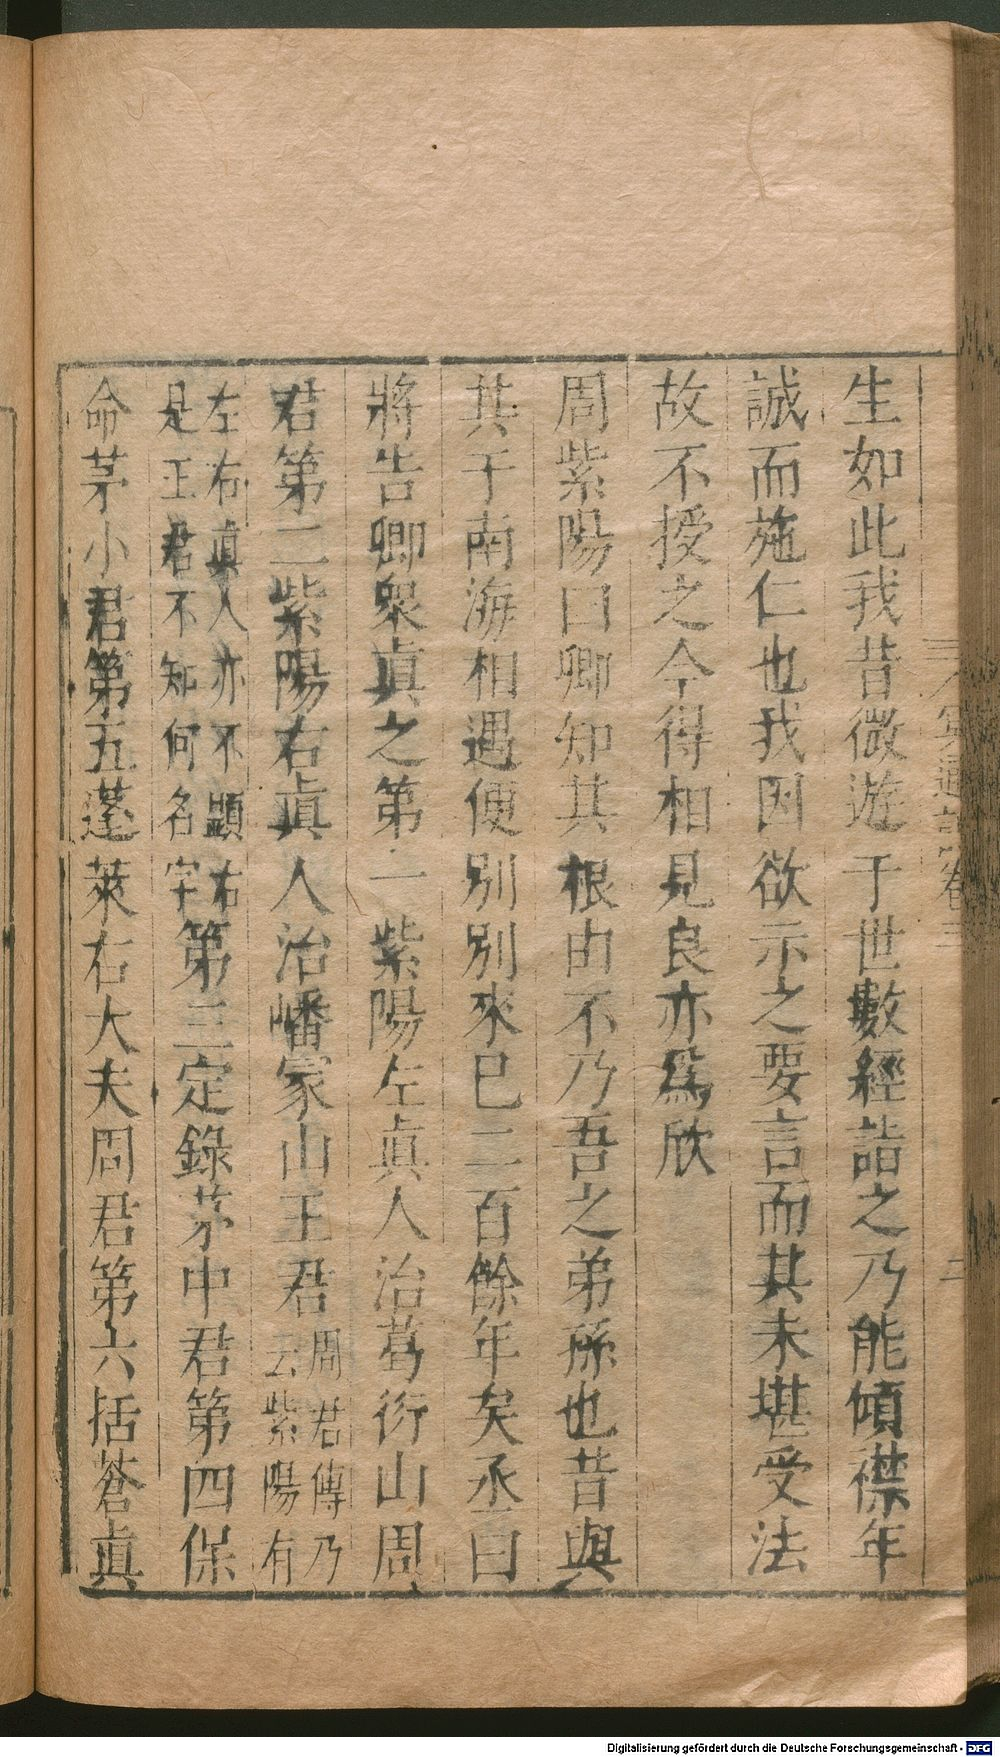 生如此我昔微遊于世數經詣之乃能傾襟年
誠而施仁也我因欲示之要言而其未堪受法
故不授之今得相見良亦爲欣
周紫陽曰卿知其根由不乃吾之弟孫也昔與
其于南海相遇便別別來已二百餘年矣丞曰
將告卿衆眞之第一紫陽左眞人治葛衍山周
君第二紫陽右眞人治嶓冢山王君周君傳乃云紫陽有
左右眞人亦不顯右是王君不知何名字第三定錄茅中君第四保
命茅小君第五蓬萊右大夫周君第六括蒼眞
冥通記卷三
二
Digitalisierung gefördert durch die Deutsche Forschungsgemeinschaft - DFG